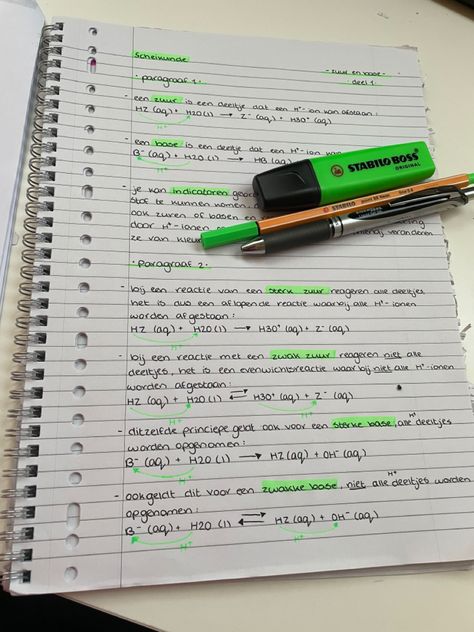 scheikunde
- zuur en base -
· paragraaf 1 ·
deel 1
- een zuur is een deeltje dat een H⁺-ion kan afstaan:
HZ (aq) + H2O (l) → Z⁻ (aq) + H3O⁺ (aq)
H⁺
- een base is een deeltje dat een H⁺-ion kan
B⁻ (aq) + H2O (l) → HB (aq)
H⁺
STABILO BOSS
ORIGINAL
- je kan indicatoren
stof te kunnen komen,
ook zuren of basen en
door H⁺-ionen
ze van kleur veranderen
· paragraaf 2 ·
- bij een reactie van een sterk zuur reageren alle deeltjes
het is dus een aflopende reactie waarbij alle H⁺-ionen
worden afgestaan:
HZ (aq) + H2O (l) → H3O⁺ (aq) + Z⁻ (aq)
H⁺
- bij een reactie met een zwak zuur reageren niet alle
deeltjes, het is een evenwichtsreactie waarbij niet alle H⁺-ionen
worden afgestaan:
HZ (aq) + H2O (l) ⇄ H3O⁺ (aq) + Z⁻ (aq)
H⁺ H⁺
- ditzelfde principe geldt ook voor een sterke base, alle H⁺ deeltjes
worden opgenomen:
B⁻ (aq) + H2O (l) → HZ (aq) + OH⁻ (aq)
H⁺
- ook geldt dit voor een zwakke base, niet alle H⁺ deeltjes worden
opgenomen:
B⁻ (aq) + H2O (l) ⇄ HZ (aq) + OH⁻ (aq)
H⁺ H⁺